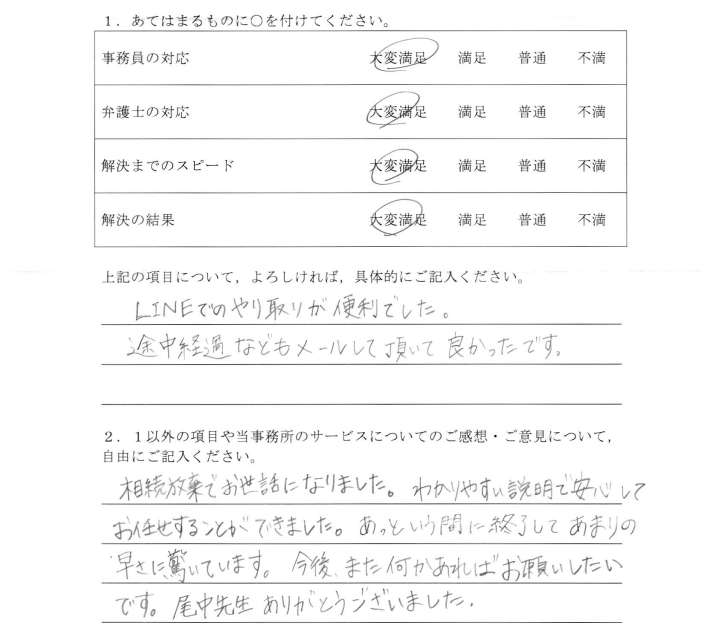 １．あてはまるものに○を付けてください。
事務員の対応 大変満足 満足 普通 不満
弁護士の対応 大変満足 満足 普通 不満
解決までのスピード 大変満足 満足 普通 不満
解決の結果 大変満足 満足 普通 不満
上記の項目について，よろしければ，具体的にご記入ください。
LINEでのやり取りが便利でした。
途中経過などもメールして頂いて良かったです。
２．１以外の項目や当事務所のサービスについてのご感想・ご意見について，
自由にご記入ください。
相続放棄でお世話になりました。わかりやすい説明で安心して
お任せすることができました。あっという間に終了してあまりの
早さに驚いています。今後、また何かあればお願いしたい
です。尾中先生ありがとうございました．